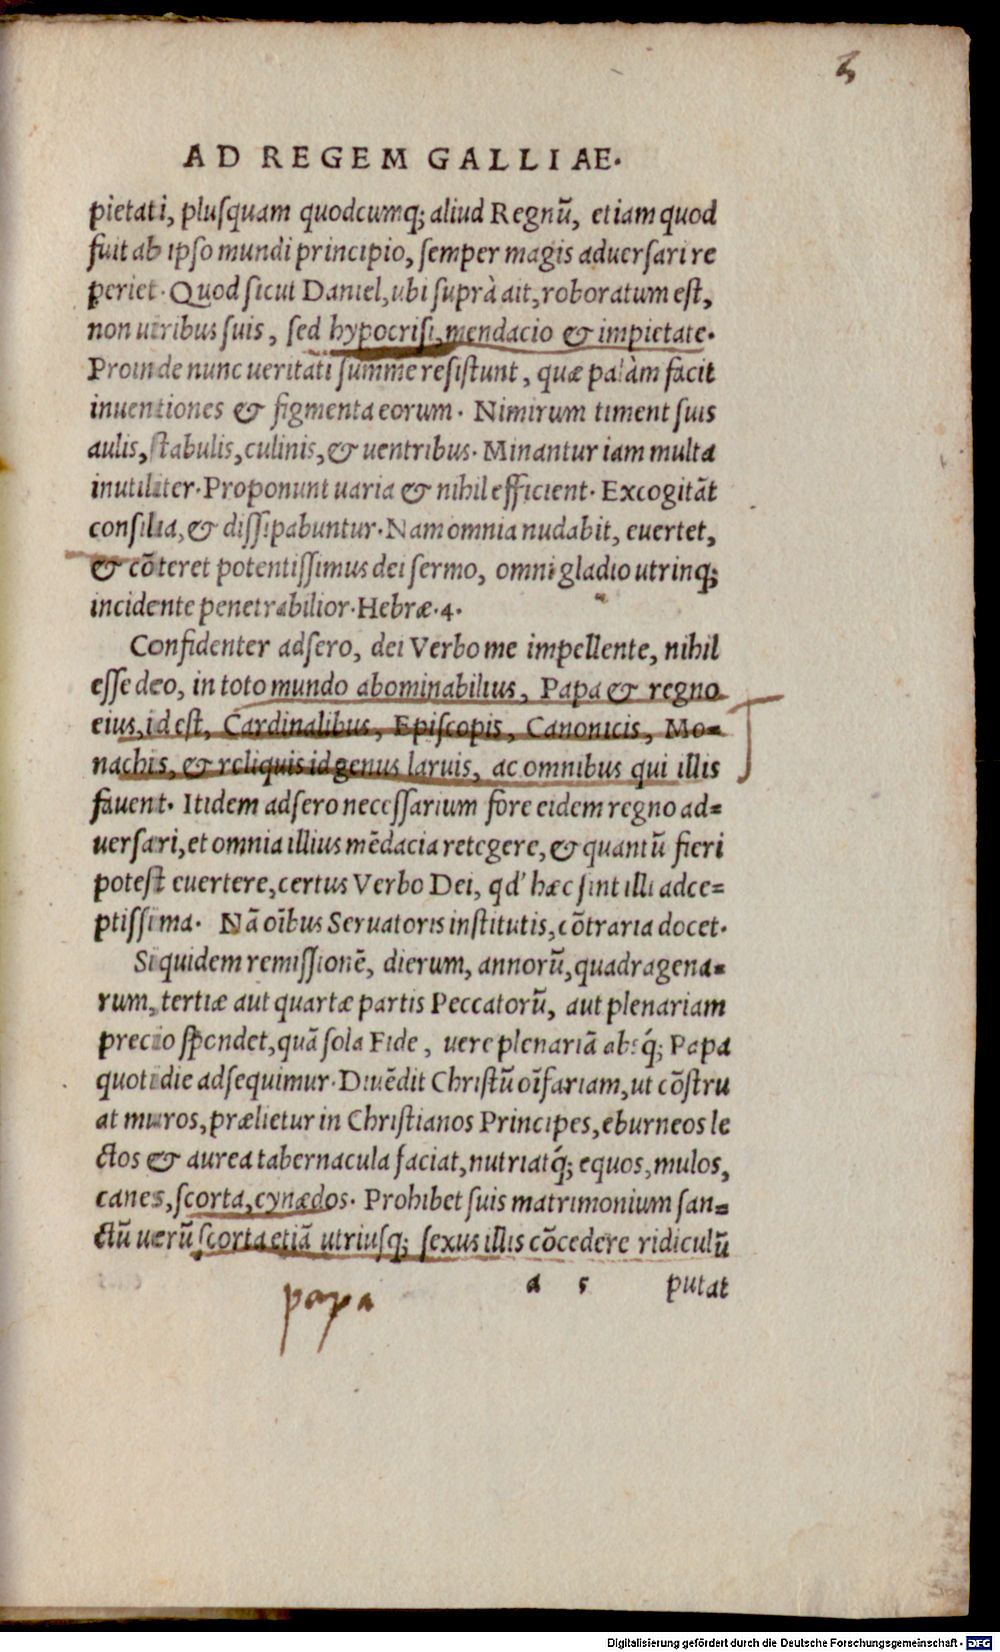 5
AD REGEM GALLIAE.
pietati, plusquam quodcumq; aliud Regnū, etiam quod
fuit ab ipso mundi principio, semper magis aduersari re
periet. Quod sicut Daniel, ubi suprà ait, roboratum est,
non uiribus suis, sed hypocrisi, mendacio & impietate.
Proinde nunc ueritati summe resistunt, quæ palàm facit
inuentiones & figmenta eorum. Nimirum timent suis
aulis, stabulis, culinis, & uentribus. Minantur iam multa
inutiliter. Proponunt uaria & nihil efficient. Excogitāt
consilia, & dissipabuntur. Nam omnia nudabit, euertet,
& cōteret potentissimus dei sermo, omni gladio utrinq;
incidente penetrabilior. Hebræ. 4.
Confidenter adsero, dei Verbo me impellente, nihil
esse deo, in toto mundo abominabilius, Papa & regno
eius, id est, Cardinalibus, Episcopis, Canonicis, Mo=
nachis, & reliquis id genus laruis, ac omnibus qui illis
fauent. Itidem adsero necessarium fore eidem regno ad=
uersari, et omnia illius mēdacia retegere, & quantū fieri
potest euertere, certus Verbo Dei, qd' hæc sint illi adce=
ptissima. Nā oībus Seruatoris institutis, cōtraria docet.
Siquidem remissionē, dierum, annorū, quadragena=
rum, tertiæ aut quartæ partis Peccatorū, aut plenariam
precio spondet, quā sola Fide, uere plenariā absq́; Papa
quotidie adsequimur. Diuēdit Christū oīfariam, ut cōstru
at muros, prælietur in Christianos Principes, eburneos le
ctos & aurea tabernacula faciat, nutriatq́; equos, mulos,
canes, scorta, cynædos. Prohibet suis matrimonium san=
ctū uerū scorta etiā utriusq; sexus illis cōcedere ridiculū
a 5 putat
papa
Digitalisierung gefördert durch die Deutsche Forschungsgemeinschaft - DFG